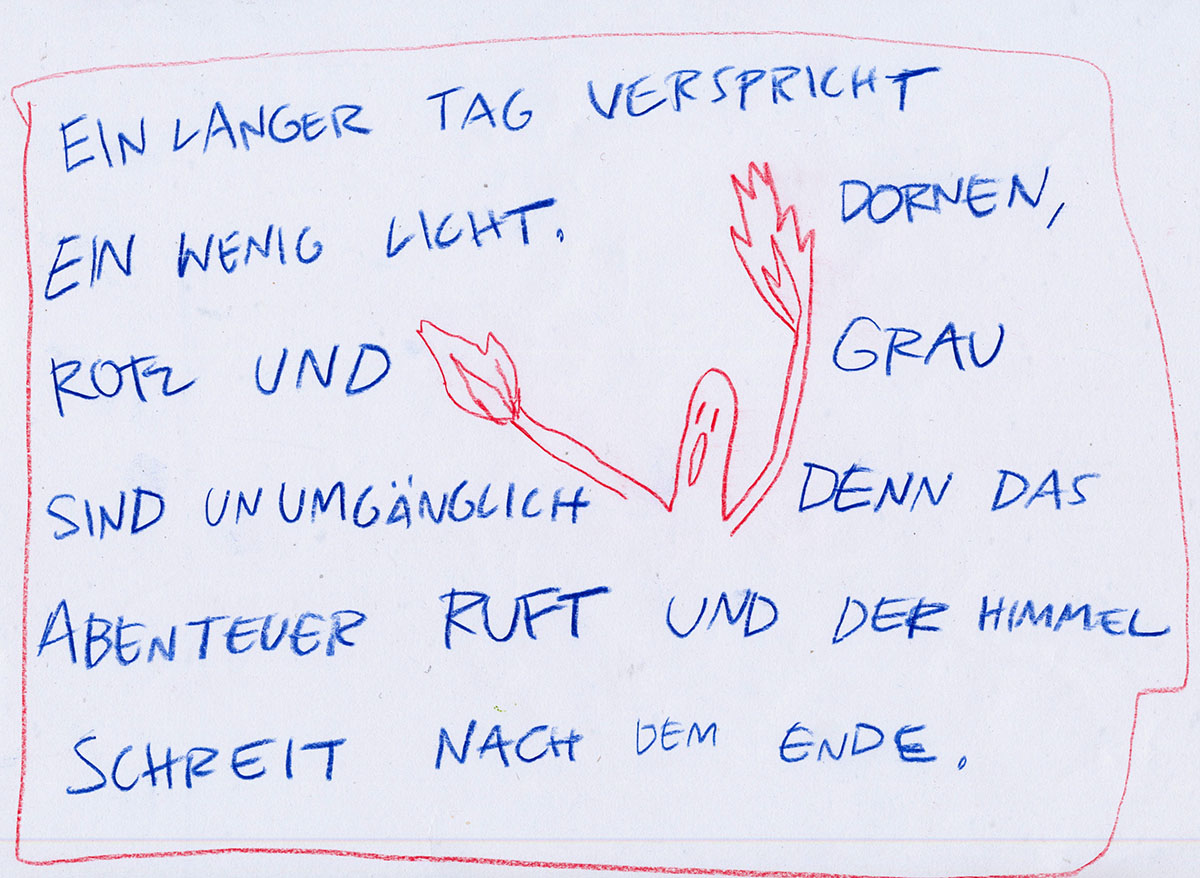 EIN LANGER TAG VERSPRICHT
EIN WENIG LICHT. DORNEN,
ROTZ UND GRAU
SIND UNUMGÄNGLICH DENN DAS
ABENTEUER RUFT UND DER HIMMEL
SCHREIT NACH DEM ENDE.